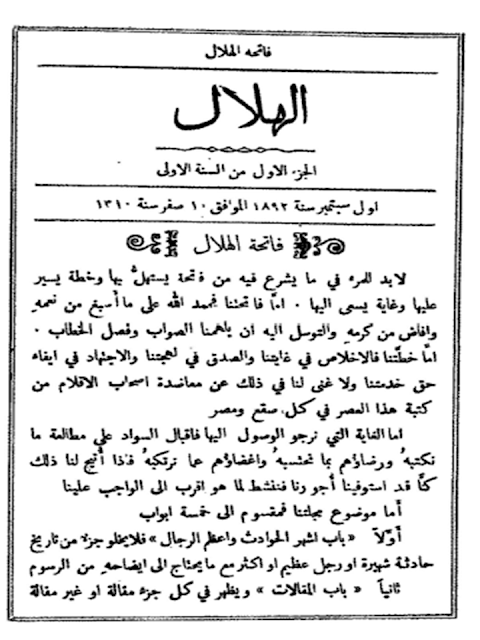 فاتحة الهلال
الهلال
الجزء الاول من السنة الاولى
اول سبتمبر سنة ١٨٩٢ الموافق ١٠ صفر سنة ١٣١٠
فاتحة الهلال
لابد للمرء في ما يشرع فيه من فاتحة يستهل بها وخطة يسير
عليها وغاية يسعى اليها ٠ امّا فاتحتنا فحمد الله على ما أسبغ من نعمهِ
وافاض من كرمهِ والتوسل اليه ان يلهمنا الصواب وفصل الخطاب ٠
امّا خطتنا فالاخلاص في غايتنا والصدق في لهجتنا والاجتهاد في ايفاء
حق خدمتنا ولا غنى لنا في ذلك عن معاضدة اصحاب الاقلام من
كتبة هذا العصر في كل صقع ومصر
اما الغاية التي نرجو الوصول اليها فاقبال السواد على مطالعة ما
نكتبهُ ورضاؤهم بما نحتسبهُ واغضاؤهم عما نرتكبهُ فاذا أتيح لنا ذلك
كنّا قد استوفينا أجورنا فننشط لما هو اقرب الى الواجب علينا
أما موضوع مجلتنا فمقسوم الى خمسة ابواب
أوّلاً « باب اشهر الحوادث واعظم الرجال » فلا يخلو جزء من تاريخ
حادثة شهيرة او رجل عظيم او اكثر مع ما يحتاج الى ايضاحهِ من الرسوم
ثانياً « باب المقالات » ويظهر في كل جزء مقالة او غير مقالة